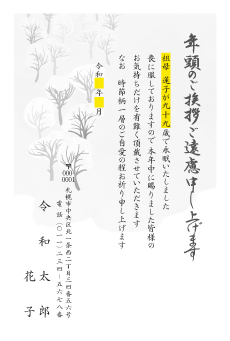 年頭のご挨拶ご遠慮申し上げます
祖母 蓮子が九十九歳で永眠いたしました
喪に服しておりますので本年中に賜りました皆様の
お気持ちだけを有難く頂戴させていただきます
なお 時節柄一層のご自愛の程お祈り申し上げます
令和 年 月
〒000
0001
札幌市中央区北一条西二丁目三四番五六号
電話(〇一一)二三四-五六七八番
令和 太郎
花子